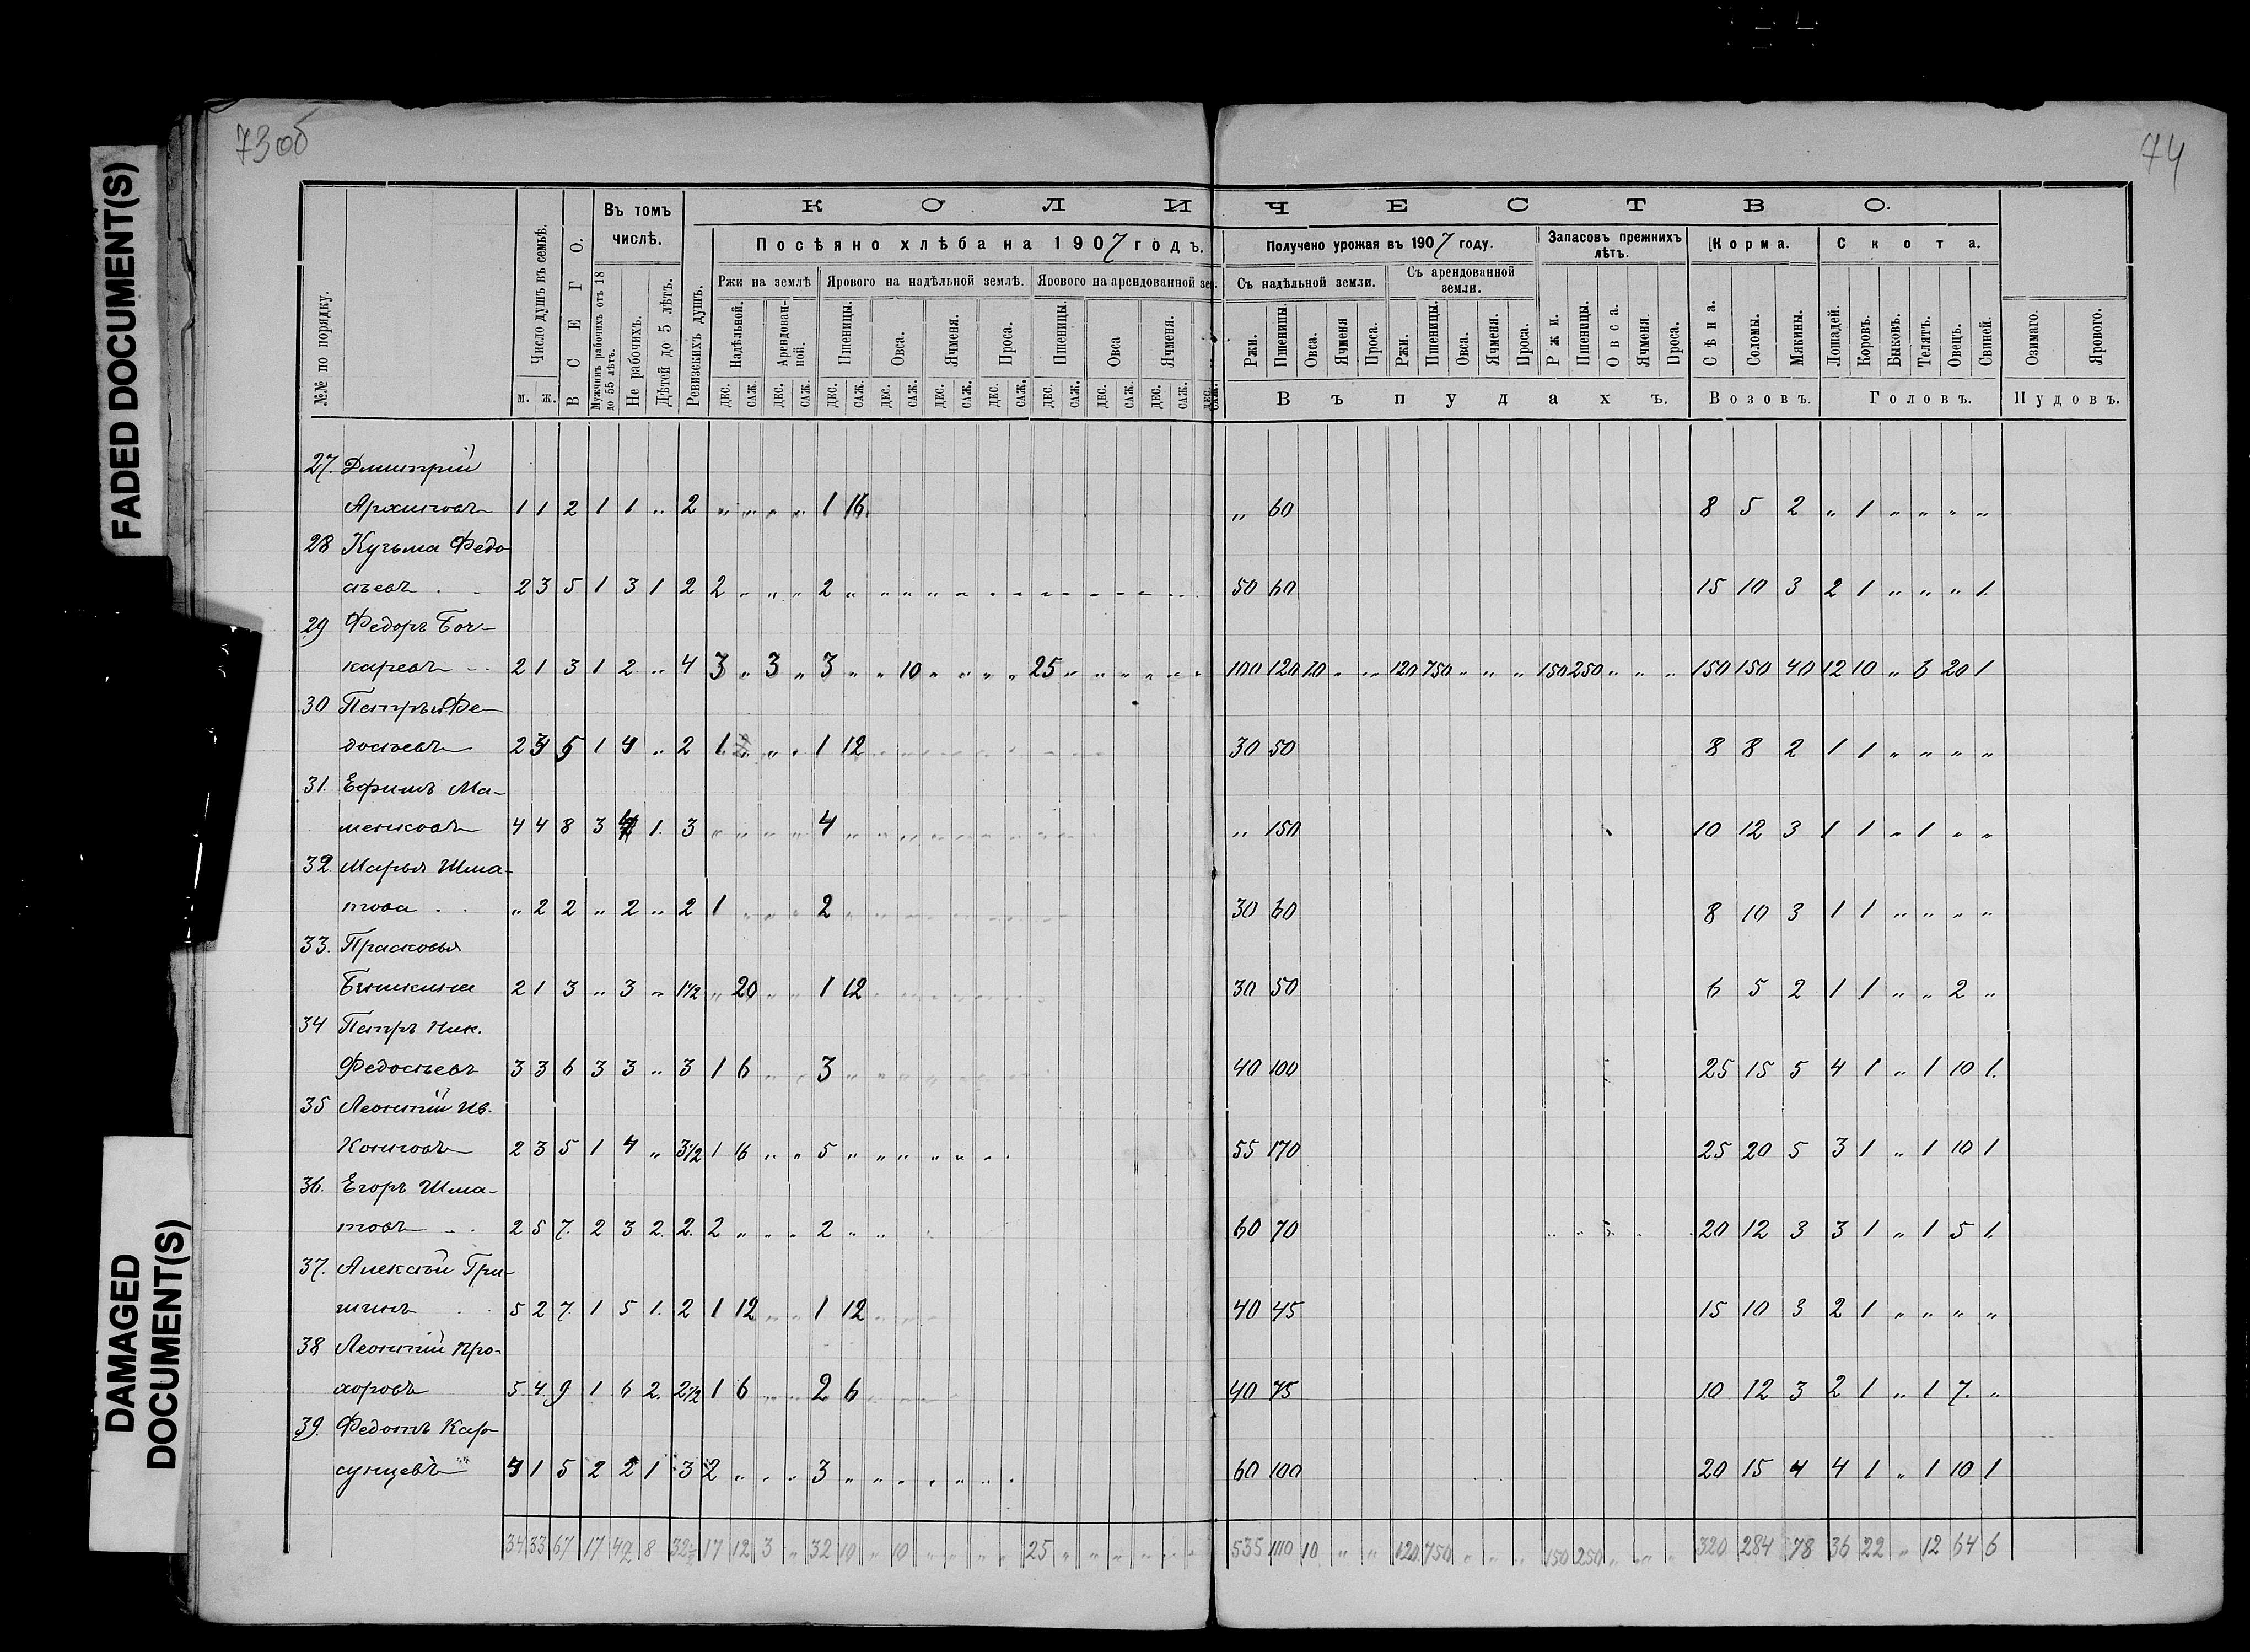 73об
74
FADED DOCUMENT(S)
DAMAGED DOCUMENT(S)
К О Л И Ч Е С Т В О.
№№ по порядку.
Число душъ въ семьѣ.
м. ж.
В С Е Г О.
Въ томъ числѣ.
Мужчинъ рабочихъ отъ 18 до 55 лѣтъ.
Не рабочихъ.
Дѣтей до 5 лѣтъ.
Ревизскихъ душъ.
Посѣяно хлѣба на 1907 годъ.
Ржи на землѣ
Надѣльной.
Арендованной.
Ярового на надѣльной землѣ.
Пшеницы.
Овса.
Ячменя.
Проса.
Ярового на арендованной зем.
Пшеницы.
Овса
Ячменя.
дес. саж. дес. саж. дес. саж. дес. саж. дес. саж. дес. саж. дес. саж. дес. саж. дес. саж. дес. саж.
Получено урожая въ 1907 году.
Съ надѣльной земли.
Ржи. Пшеницы. Овса. Ячменя Проса.
Съ арендованной земли.
Ржи. Пшеницы. Овса. Ячменя. Проса.
Запасовъ прежнихъ лѣтъ.
Ржи. Пшеницы. Овса. Ячменя. Проса.
В ъ п у д а х ъ.
Корма.
Сѣна. Соломы. Мякины.
Возовъ.
Скота.
Лошадей. Коровъ. Быковъ. Телятъ. Овецъ. Свиней.
Головъ.
Озимаго. Ярового.
Пудовъ.
27. Дмитрій
Архиповъ 1 1 2 1 1 „ 2 „ „ „ „ 1 16 „ 60 8 5 2 „ 1 „ „ „ „
28 Кузьма Федо
сѣевъ 2 3 5 1 3 1 2 2 „ „ „ 2 „ 50 60 15 10 3 2 1 „ „ „ 1.
29 Федоръ Боч-
каревъ 2 1 3 1 2 „ 4 3 „ 3 „ 3 „ „ 10 „ „ „ „ 25 „ „ „ „ „ 100 120 10 „ „ 120 750 „ „ „ 150 250 „ „ „ 150 150 40 12 10 „ 6 20 1
30 Петръ Фе-
досѣевъ 2 3 5 1 4 „ 2 1 „ „ 1 12 30 50 8 8 2 1 1 „ „ „ „
31. Ефимъ Ма-
менковъ 4 4 8 3 4 1. 3 „ „ „ „ 4 „ „ 150 10 12 3 1 1 „ 1 „ „
32. Марья Шма-
това „ 2 2 „ 2 „ 2 1 „ „ „ 2 30 60 8 10 3 1 1 „ „ „ „
33. Прасковья
2 1 3 „ 3 „ 1½ „ 20 „ „ 1 12 30 50 6 5 2 1 1 „ „ 2 „
34 Петръ Ник.
Федосѣевъ 3 3 6 3 3 „ 3 1 6 „ „ 3 „ 40 100 25 15 5 4 1 „ 1 10 1.
35 Леонтій Ив.
Конновъ 2 3 5 1 4 „ 3½ 1 16 „ „ 5 „ „ „ „ „ „ 55 170 25 20 5 3 1 „ 1 10 1
36. Егоръ Шма-
товъ 2 5 7. 2 3 2. 2. 2 „ „ „ 2 „ „ 60 70 20 12 3 3 1 „ 1 5 1.
37. Алексѣй Гри-
шинъ 5 2 7. 1 5 1. 2 1 12 „ „ 1 12 40 45 15 10 3 2 1 „ „ „ „
38 Леонтій Про-
хоровъ 5 4 9 1 6 2. 2½ 1 6 „ „ 2 6 40 75 10 12 3 2 1 „ 1 7. „
39. Федотъ Кар-
сунцевъ 4 1 5 2 2 1 3 2 „ „ „ 3 „ „ „ „ „ „ 60 100 20 15 4 4 1 „ 1 10 1
34 33 67 17 42 8 32½ 17 12 3 „ 32 10 „ 10 „ „ „ „ 25 „ „ „ „ „ 535 1110 10 „ „ 120 750 „ „ „ 150 250 „ „ „ 320 284 78 36 22 „ 12 64 6